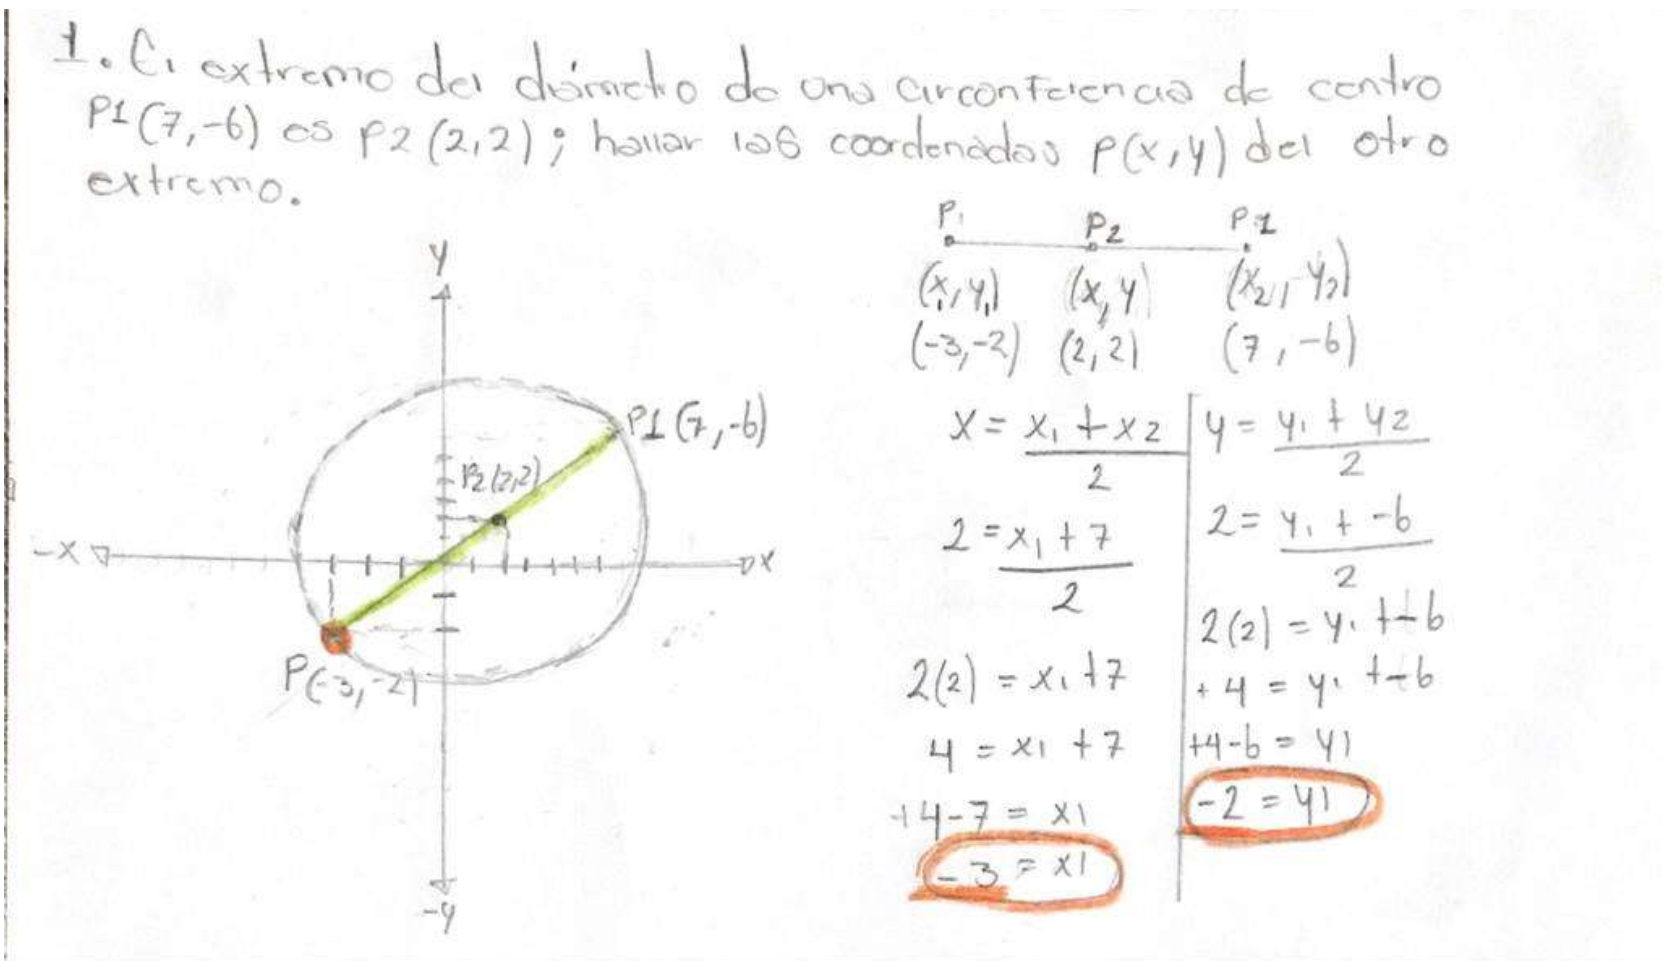 1. El extremo del diámetro de una circonferencia de centro
P1(7,-6) es P2(2,2); hallar las coordenadas P(x,y) del otro
extremo.
P1 P2 P1
(x1,y1) (x,y) (x2,-y2)
(-3,-2) (2,2) (7,-6)
y
-x x
-y
P1(7,-6)
P2(2,2)
P(-3,-2)
x = x1 + x2
2
2 = x1 + 7
2
2(2) = x1 +7
4 = x1 +7
+4-7 = x1
-3 = x1
y = y1 + y2
2
2 = y1 + -6
2
2(2) = y1 +-6
+4 = y1 +-6
+4-6 = y1
-2 = y1